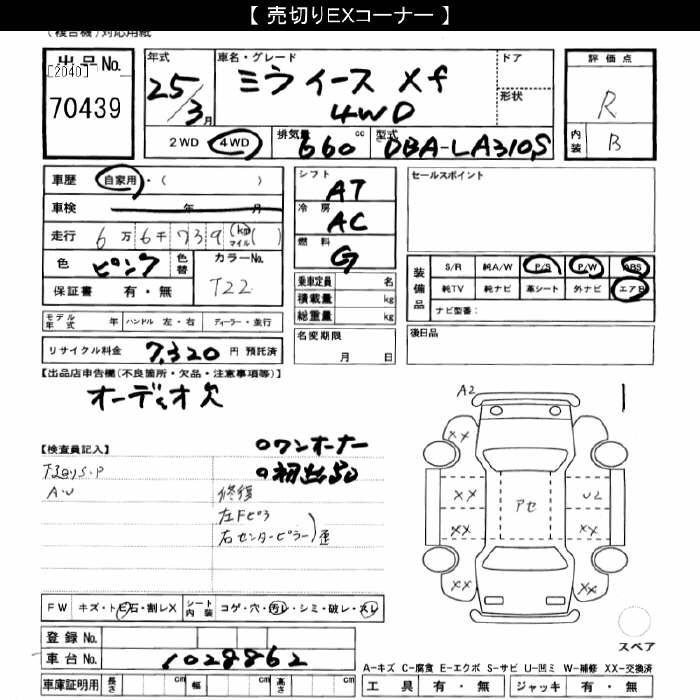 【 売切りEXコーナー 】
(複合機)対応用紙
出品No.
[2040]
70439
年式
25/3月
車名・グレード
ミライース Xf
4WD
ドア
形状
評価点
R
内装
B
2WD 4WD
排気量 660 cc
型式 DBA-LA310S
車歴 自家用・( )
車検 年 月
走行 6万6千739 (km マイル)( )
色 ピンク
色替
カラーNo. T22
保証書 有・無
シフト AT
冷房 AC
燃料 G
乗車定員 名
積載量 kg
総重量 kg
セールスポイント
装備品
S/R 純A/W P/S P/W ABS
純TV 純ナビ 革シート 外ナビ エアB
ナビ型番:
モデル年式 年 ハンドル 左・右 ディーラー・並行
名変期限
月 日
後日品
リサイクル料金 7,320 円 預託済
【出品店申告欄(不良箇所・欠品・注意事項等)】
オーディオ欠
【検査員記入】
○ワンオーナー
○初出品
修復
左Fピラ
右センターピラー)歪
A2
XX
XX アセ U2
XX XX
XX XX
FW キズ・トビ石・割レX
シート内装 コゲ・穴・汚レ・シミ・破レ・スレ
登録No.
車台No. 1028862
スペア
A−キズ C−腐食 E−エクボ S−サビ U−凹ミ W−補修 XX−交換済
車庫証明用 長さ cm 幅 cm 高さ cm
工具 有・無 ジャッキ 有・無